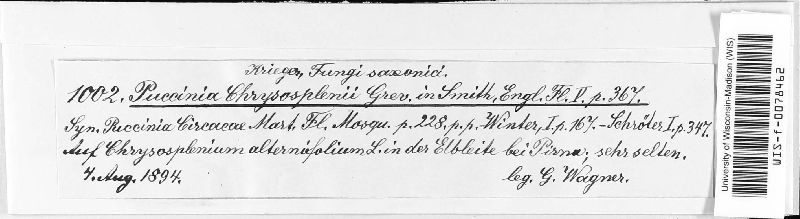 Krieger, Fungi saxonici.
1002. Puccinia Chrysosplenii Grev. in Smith, Engl. Fl. V. p. 367.
Syn. Puccinia Circaeae Mart. Fl. Mosqu. p. 228. p. p. Winter, I. p. 167. - Schröter I, p. 347.
Auf Chrysosplenium alternifolium L. in der Elbleite bei Pirna; sehr selten.
7. Aug. 1894. leg. G. Wagner.
University of Wisconsin-Madison (WIS)
WIS-f-0078462